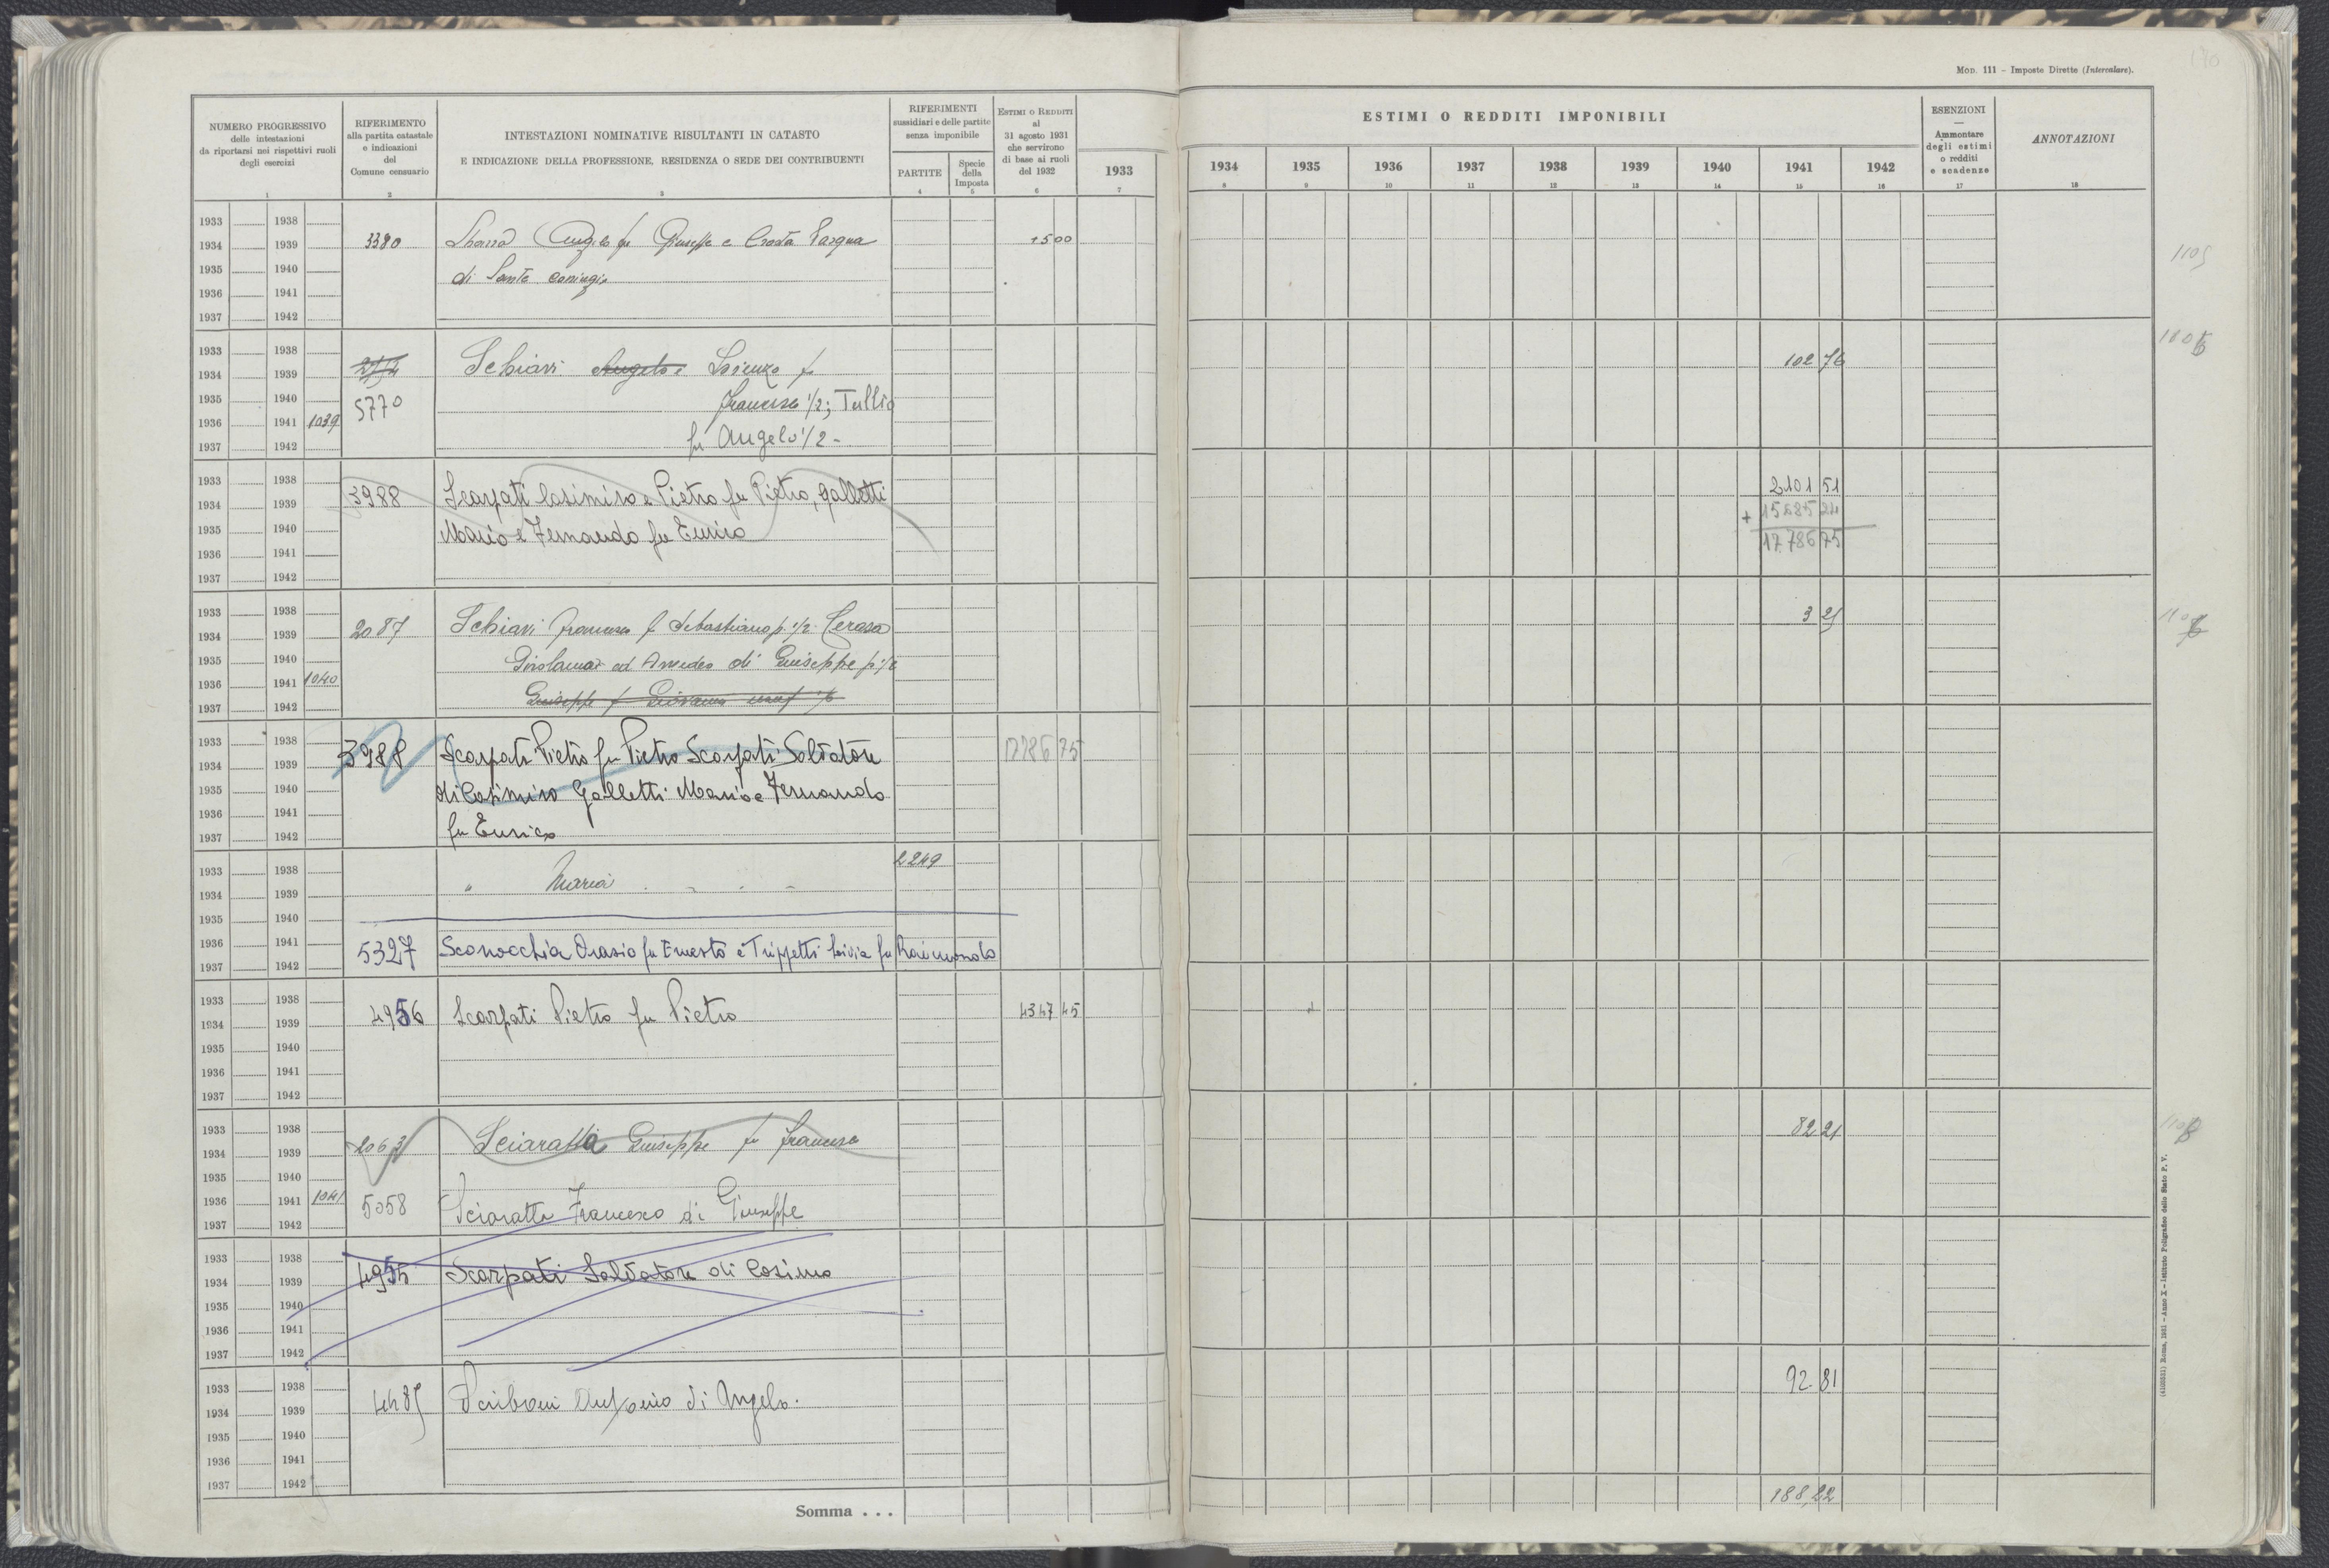 Mod. 111 – Imposte Dirette (Intercalare).
NUMERO PROGRESSIVO
delle intestazioni
da riportarsi nei rispettivi ruoli
degli esercizi
1
RIFERIMENTO
alla partita catastale
e indicazioni
del
Comune censuario
2
INTESTAZIONI NOMINATIVE RISULTANTI IN CATASTO
E INDICAZIONE DELLA PROFESSIONE, RESIDENZA O SEDE DEI CONTRIBUENTI
3
RIFERIMENTI
sussidiari e delle partite
senza imponibile
PARTITE
4
Specie
della
Imposta
5
ESTIMI O REDDITI
al
31 agosto 1931
che servirono
di base ai ruoli
del 1932
6
1933
7
ESTIMI O REDDITI IMPONIBILI
1934 1935 1936 1937 1938 1939 1940 1941 1942
8 9 10 11 12 13 14 15 16
ESENZIONI
—
Ammontare
degli estimi
o redditi
e scadenze
17
ANNOTAZIONI
18
1933 1938
1934 1939 3380 Angelo fu Giuseppe e Pasqua 1500
1935 1940 di Sante coniugi
1936 1941
1937 1942
1105
1933 1938
1934 1939 Schiavi Angelo e Lorenzo f 102 76
1935 1940 5770 Francesco 1/2; Tullio
1936 1941 1039 fu Angelo 1/2 -
1937 1942
1933 1938 2101 51
1934 1939 3988 Scarpati Casimiro e Pietro fu Pietro, Galletti + 15685 24
1935 1940 Mario e Fernando fu Enrico 17786 75
1936 1941
1937 1942
1933 1938 3 25
1934 1939 2087 Schiavi Francesco f Sebastiano p. 1/2 Cerasa
1935 1940 ed Amedeo di Giuseppe p. 1/2
1936 1941 1040 Giuseppe f Giovanni
1937 1942
1933 1938 3988 Scarpati Pietro fu Pietro Scarpati Salvatore 17786 75
1934 1939
1935 1940 di Casimiro Galletti Mario e Fernando
1936 1941
1937 1942 fu Enrico
1933 1938 2249
1934 1939 " Maria
1935 1940
1936 1941 5327 Sconocchia Orasio fu Ernesto e Trippetti Livia fu Raimondo
1937 1942
1933 1938
1934 1939 4956 Scarpati Pietro fu Pietro 4347 45
1935 1940
1936 1941
1937 1942
1933 1938 2063 Sciaratta Giuseppe fu Francesco 82 21
1934 1939
1935 1940
1936 1941 1041 5058 Sciaratta Francesco di Giuseppe
1937 1942
1933 1938
1934 1939 4955 Scarpati Salvatore di Cosimo
1935 1940
1936 1941
1937 1942
1933 1938 92 81
1934 1939 4485 Scriboni Antonio di Angelo.
1935 1940
1936 1941
1937 1942
Somma . . . 188,22
(4100331) Roma, 1931 – Anno X – Istituto Poligrafico dello Stato P. V.